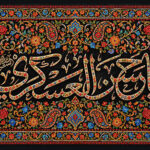 الحسن العسکری